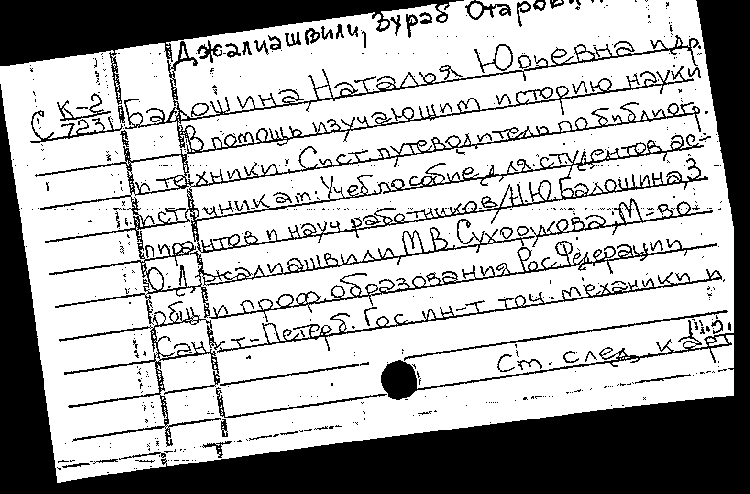 Джалиашвили, Зураб Отарович
С К-2 Балошина, Наталья Юрьевна и др.
7231 В помощь изучающим историю науки
и техники: Сист. путеводитель по библиогр.
источникам: Учеб. пособие для студентов, ас-
пирантов и науч. работников/Н.Ю. Балошина, З.
О. Джалиашвили, М.В. Сухорукова; М-во
общ. и проф. образования Рос. Федерации,
Санкт-Петерб. Гос. ин-т точ. механики и
См. след. карт